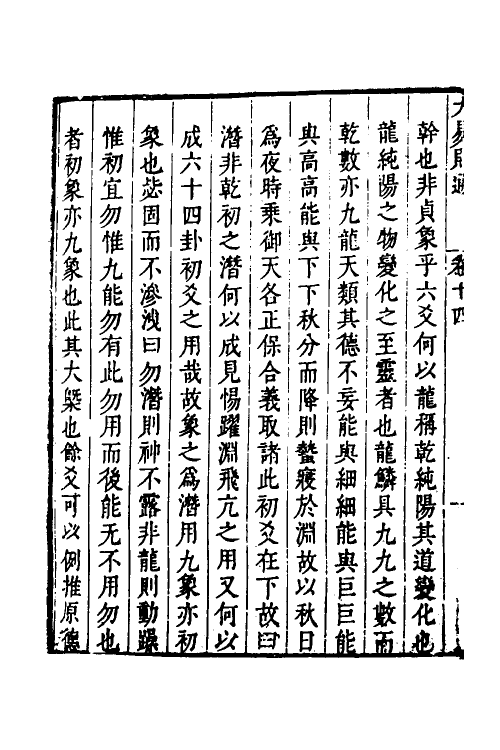 大易則通 卷十四 一
幹也非貞象乎六爻何以龍稱乾純陽其道變化也
龍純陽之物變化之至靈者也龍鱗具九九之數而
乾數亦九龍天類其德不妄能與細細能與巨巨能
與高高能與下下秋分而降則蟄寢於淵故以秋日
為夜時乘御天各正保合義取諸此初爻在下故曰
潛非乾初之潛何以成見惕躍淵飛亢之用又何以
成六十四卦初爻之用哉故象之為潛用九象亦初
象也毖固而不滲洩曰勿潛則神不露非龍則動躁
惟初宜勿惟九能勿有此勿用而後能无不用勿也
者初象亦九象也此其大槩也餘爻可以例推原德